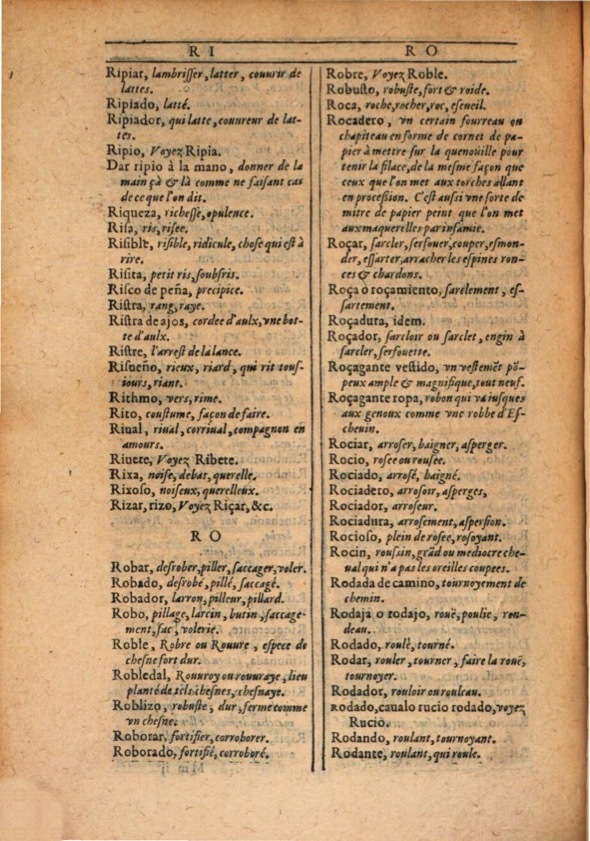 RI
Ripiar, lambrisser, latter, couurir de
lattes.
Ripiado, latté.
Ripiador, qui latte, couureur de lat-
tes.
Ripio, Voyez Ripia.
Dar ripio à la mano, donner de la
main çà & là comme ne faisant cas
de ce que l'on dit.
Riqueza, richesse, opulence.
Risa, ris, risee.
Risible, risible, ridicule, chose qui est à
rire.
Risita, petit ris, soubsris.
Risco de peña, precipice.
Ristra, rang, raye.
Ristra de ajos, cordee d'aulx, vne bot-
te d'aulx.
Ristre, l'arrest de la lance.
Risueño, rieux, riard, qui rit tous-
iours, riant.
Rithmo, vers, rime.
Rito, coustume, façon de faire.
Riual, riual, corriual, compagnon en
amours.
Riuete, Voyez Ribete.
Rixa, noise, debat, querelle.
Rixoso, noiseux, querelleux.
Rizar, rizo, Voyez Riçar, &c.
RO
Robar, desrober, piller, saccager, voler.
Robado, desrobé, pillé, saccagé.
Robador, larron, pilleur, pillard.
Robo, pillage, larcin, butin, saccage-
ment, sac, volerie.
Roble, Robre ou Rouure, espece de
chesne fort dur.
Robledal, Rouuroy ou rouuraye, lieu
planté de tels chesnes, chesnaye.
Roblizo, robuste, dur, ferme comme
vn chesne.
Roborar, fortifier, corroborer.
Roborado, fortifié, corroboré.
RO
Robre, Voyez Roble.
Robusto, robuste, fort & roide.
Roca, roche, rocher, roc, escueil.
Rocadero, vn certain fourreau ou
chapiteau en forme de cornet de pa-
pier à mettre sur la quenoüille pour
tenir la filace, de la mesme façon que
ceux que l'on met aux torches allant
en procession. C'est aussi vne sorte de
mitre de papier peint que l'on met
aux maquerelles par infamie.
Roçar, sarcler, serfouer, couper, esmon-
der, essarter, arracher les espines ron-
ces & chardons.
Roça o roçamiento, sarclement, es-
sartement.
Roçadura, idem.
Roçador, sarcloir ou sarclet, engin à
sarcler, serfouette.
Roçagante vestido, vn vestemēt pō-
peux ample & magnifique, tout neuf.
Roçagante ropa, robon qui va iusques
aux genoux comme vne robbe d'Es-
cheuin.
Rociar, arroser, baigner, asperger.
Rocio, rosee ou rousee.
Rociado, arrosé, baigné.
Rociadero, arrosoir, asperges,
Rociador, arroseur.
Rociadura, arrosement, aspersion.
Rocioso, plein de rosee, rosoyant.
Rocin, roussin, grād ou mediocre che-
ual qui n'a pas les oreilles coupees.
Rodada de camino, tournoyement de
chemin.
Rodaja o rodajo, rouë, poulie, ron-
deau.
Rodado, roulé, tourné.
Rodar, rouler, tourner, faire la rouë,
tournoyer.
Rodador, rouloir ou rouleau.
Rodado, caualo rucio rodado, voyez
Rucio.
Rodando, roulant, tournoyant.
Rodante, roulant, qui roule.